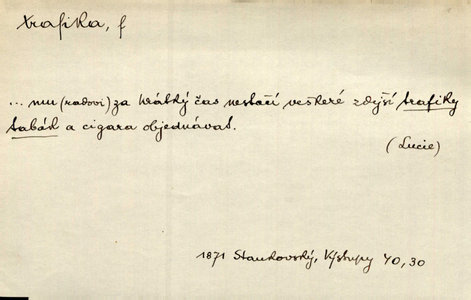 trafika, f
... mu (radovi) za krátký čas nestačí veškeré zdejší trafiky
tabák a cigara objednávat.
(Lucie)
1871 Stankovský, Výstupy 40, 30